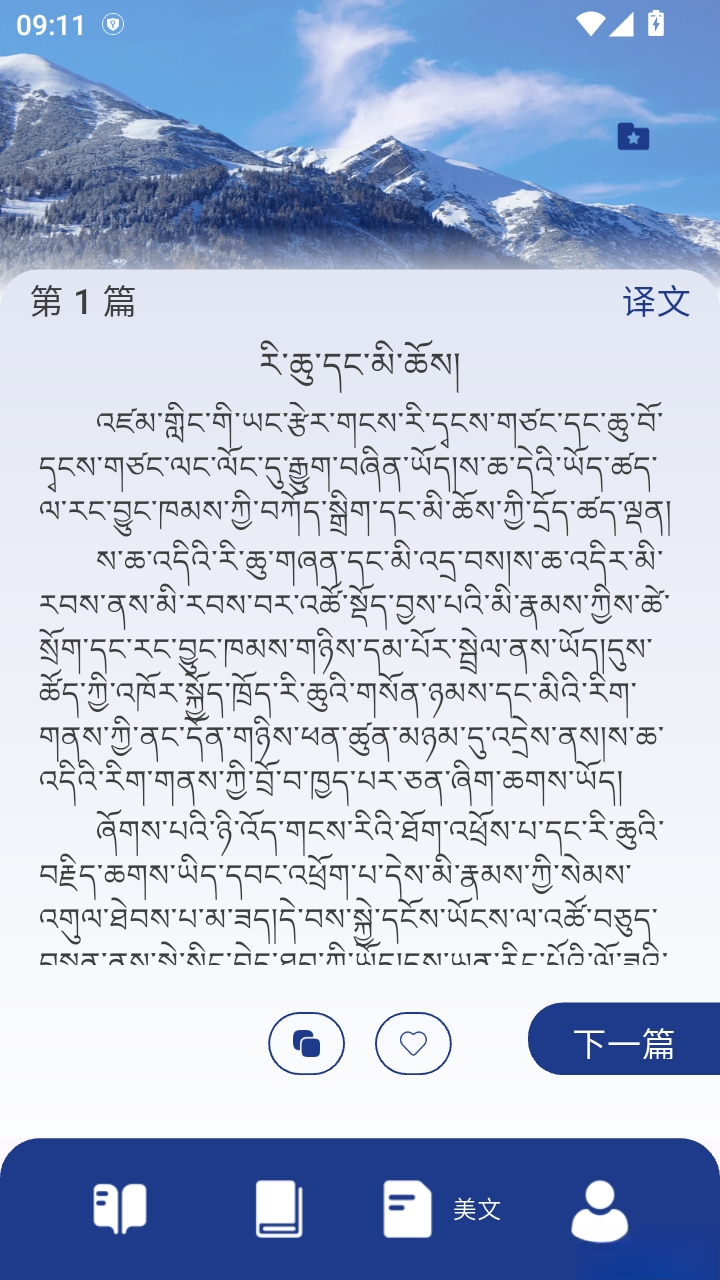 09:11
第 1 篇
译文
རི་ཆུ་དང་མི་ཆོས།
འཛམ་གླིང་གི་ཡང་རྩེར་གངས་རི་དྭངས་གཙང་དང་ཆུ་བོ་
དྭངས་གཙང་ལང་ལོང་དུ་རྒྱུག་བཞིན་ཡོད།ས་ཆ་དེའི་ཡོད་ཚད་
ལ་རང་བྱུང་ཁམས་ཀྱི་བཀོད་སྒྲིག་དང་མི་ཆོས་ཀྱི་དྲོད་ཚད་ལྡན།
ས་ཆ་འདིའི་རི་ཆུ་གཞན་དང་མི་འདྲ་བས།ས་ཆ་འདིར་མི་
རབས་ནས་མི་རབས་བར་འཚོ་སྡོད་བྱས་པའི་མི་རྣམས་ཀྱིས་ཚེ་
སྲོག་དང་རང་བྱུང་ཁམས་གཉིས་དམ་པོར་སྦྲེལ་ནས་ཡོད།དུས་
ཚོད་ཀྱི་འཁོར་སྐྱོད་ཁྲོད་རི་ཆུའི་གསོན་ཉམས་དང་མིའི་རིག་
གནས་ཀྱི་ནང་དོན་གཉིས་ཕན་ཚུན་མཉམ་དུ་འདྲེས་ནས།ས་ཆ་
འདིའི་རིག་གནས་ཀྱི་བྲོ་བ་ཁྱད་པར་ཅན་ཞིག་ཆགས་ཡོད།
ཞོགས་པའི་ཉི་འོད་གངས་རིའི་ཐོག་འཕྲོས་པ་དང་རི་ཆུའི་
བརྗིད་ཆགས་ཡིད་དབང་འཕྲོག་པ་དེས་མི་རྣམས་ཀྱི་སེམས་
འགུལ་ཐེབས་པ་མ་ཟད།དེ་བས་སྐྱེ་དངོས་ཡོངས་ལ་འཚོ་བཅུད་
下一篇
美文